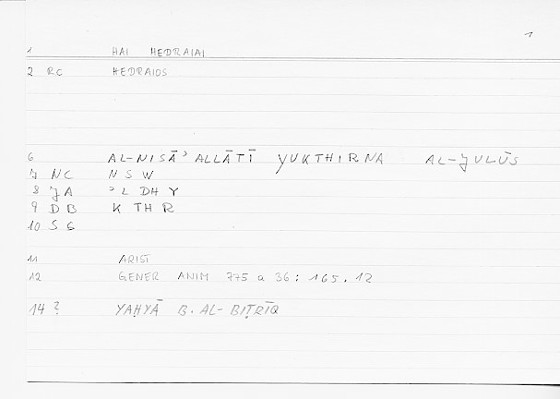 1
1 HAI HEDRAIAI
2 RC HEDRAIOS
6 AL-NISĀʾ ALLĀTĪ YUKTHIRNA AL-JULŪS
7 NC N S W
8 JA ʾ L DH Y
9 DB K TH R
10 SG
11 ARIST
12 GENER ANIM 775 a 36: 165.12
14 ? YAḤYĀ B. AL-BIṬRĪQ